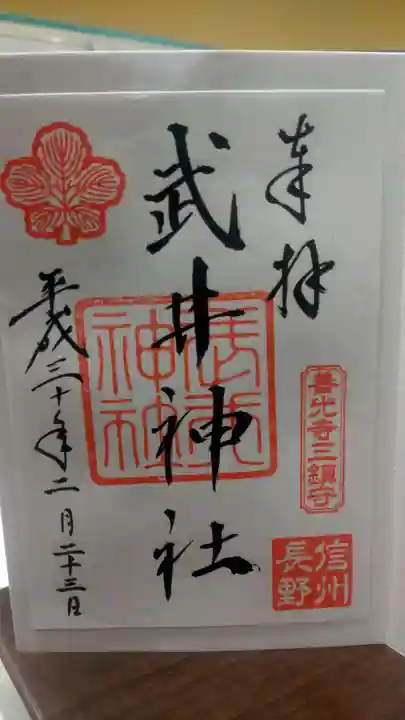 奉拝
善光寺三鎮守
信州
長野
武井神社
平成三十年二月二十三日